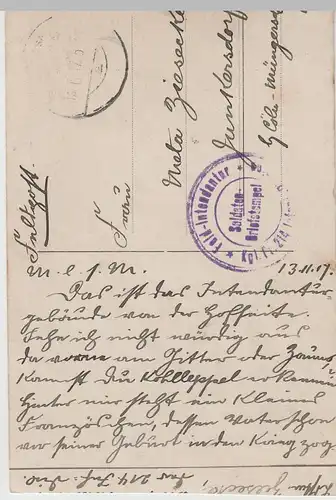 Feldpost.
Frau
Meta Ziesecke
Junkersdorf
b/ Cöln-Müngersd
Feld-Intendantur
Soldaten-
Briefstempel
M. l. s. M. 13.11.17.
Das ist das Intendantur-
gebäude von der Hofseite.
Sehe ich nicht würdig aus
da vorne am Gitter oder Zaun,
kannst Du Kohlleppel erkennen
hinter mir steht ein kleines
Französchen, dessen Vater schon
vor seiner Geburt in den Krieg zog.
der 214. Inf. Div.